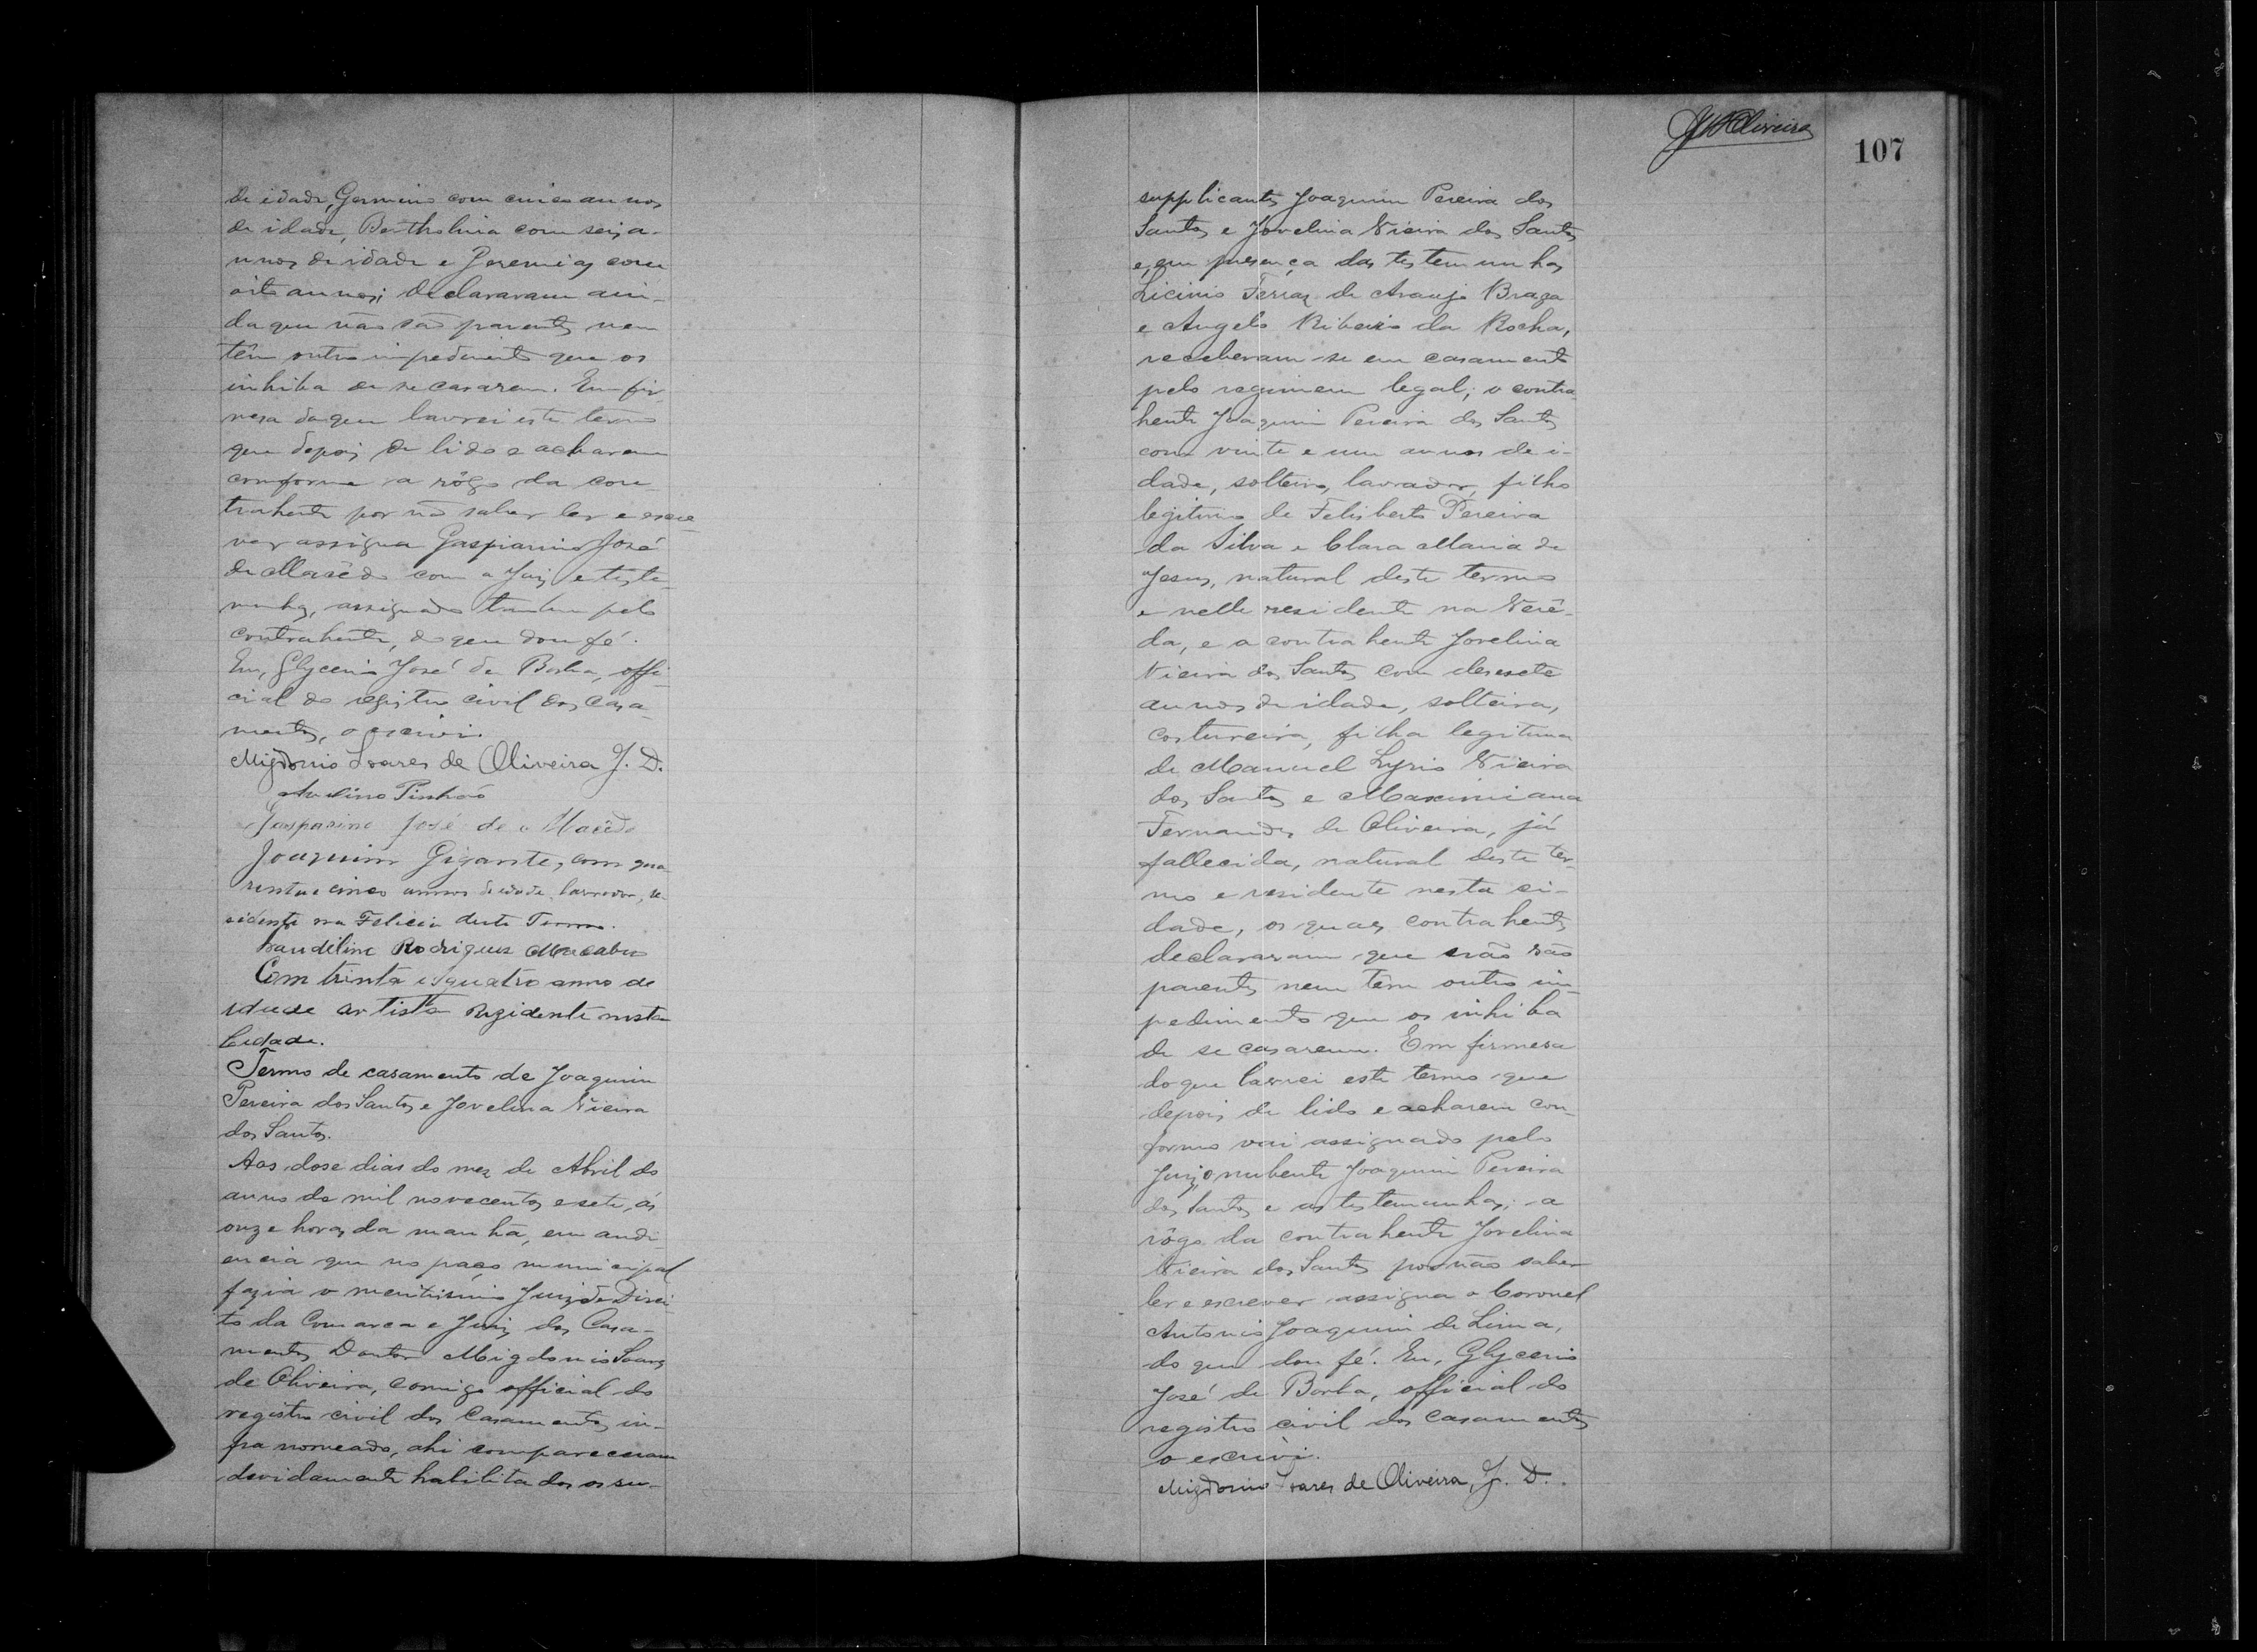 de idade, Germino com cinco annos
de idade, Bertholina com seis a-
nnos de idade e Jeremias com
oito annos; declararam ain-
da que não são parentes nem
têm outro impedimento que os
inhiba de se casarem. Em fir-
mesa do que lavrei este termo
que depois de lido e acharem
conforme a rôgo da con-
trahente por não saber ler e escre
ver assigna Gasparino José
de Macêdo com o Juiz e teste-
munhas, assignado tambem pelo
contrahente, do que dou fé.
Eu, Glycerio José de Borba, offi-
cial do registro civil dos casa-
mentos, o escrivi.
Migdonio Soares de Oliveira J. D.
Avelino Pinhão
Gasparino José de Macêdo
Joaquim Gigante, com qua
renta e cinco annos de idade, lavrador, re-
sidente na Felicia deste Termo.
Laudilino Rodrigues Macabu
Com trinta e quatro anno de
idade artista Rezidente nesta
Cidade.
Termo de casamento de Joaquim
Pereira dos Santos e Jovelina Vieira
dos Santos.
Aos dose dias do mez de Abril do
anno de mil novecentos e sete, ás
onze horas da manhã, em audi-
encia que no paço municipal
fazia o meritissimo Juiz de Direi-
to da Comarca e Juiz dos Casa-
mentos Doutor Migdonio Soares
de Oliveira, comigo official do
registro civil dos Casamentos in-
fra nomeado, ahi compareceram
devidamente habilitados os su-
JMSOliveira
107
supplicantes Joaquim Pereira dos
Santos e Jovelina Vieira dos Santos
e, em presença das testemunhas
Licinio Ferraz de Araujo Braga
e Angelo Ribeiro da Rocha,
receberam-se em casamento
pelo regimem legal; o contra-
hente Joaquim Pereira dos Santos
com vinte e um annos de i-
dade, solteiro, lavrador, filho
legitimo de Felisberto Pereira
da Silva e Clara Maria de
Jesus, natural deste termo
e nelle residente na Verê-
da, e a contrahente Jovelina
Vieira dos Santos com desesete
annos de idade, solteira,
costureira, filha legitima
de Manuel Lyrio Vieira
dos Santos e Maximiana
Fernandes de Oliveira, já
fallecida, natural deste ter-
mo e residente nesta ci-
dade, os quaes contrahentes
declararam que não são
parentes nem têm outro im-
pedimento que os inhiba
de se casarem. Em firmesa
do que lavrei este termo que
depois de lido e acharem con-
forme vai assignado pelo
Juiz, o nubente Joaquim Pereira
dos Santos e as testemunhas; a
rôgo da contrahente Jovelina
Vieira dos Santos por não saber
ler e escrever assigna o Coronel
Antonio Joaquim de Lima,
do que dou fé. Eu, Glycerio
José de Borba, official do
registro civil dos casamentos
o escrivi.
Migdonio Soares de Oliveira, J. D.